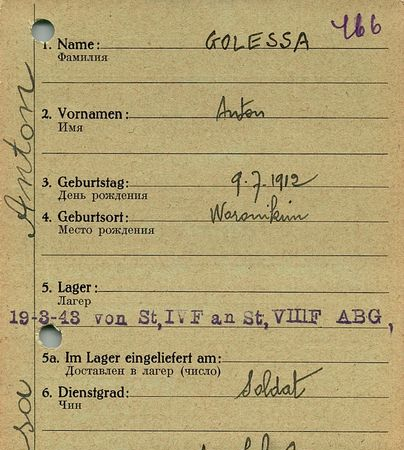 466
1. Name: GOLESSA
Фамилия
2. Vornamen: Anton
Имя
3. Geburtstag: 9.7.1912
День рождения
4. Geburtsort:
Место рождения
5. Lager:
Лагерь
19-3-43 von St, IVF an St, VIIIF ABG,
5a. Im Lager eingeliefert am:
Доставлен в лагерь (число)
6. Dienstgrad: Soldat
Чин
Anton